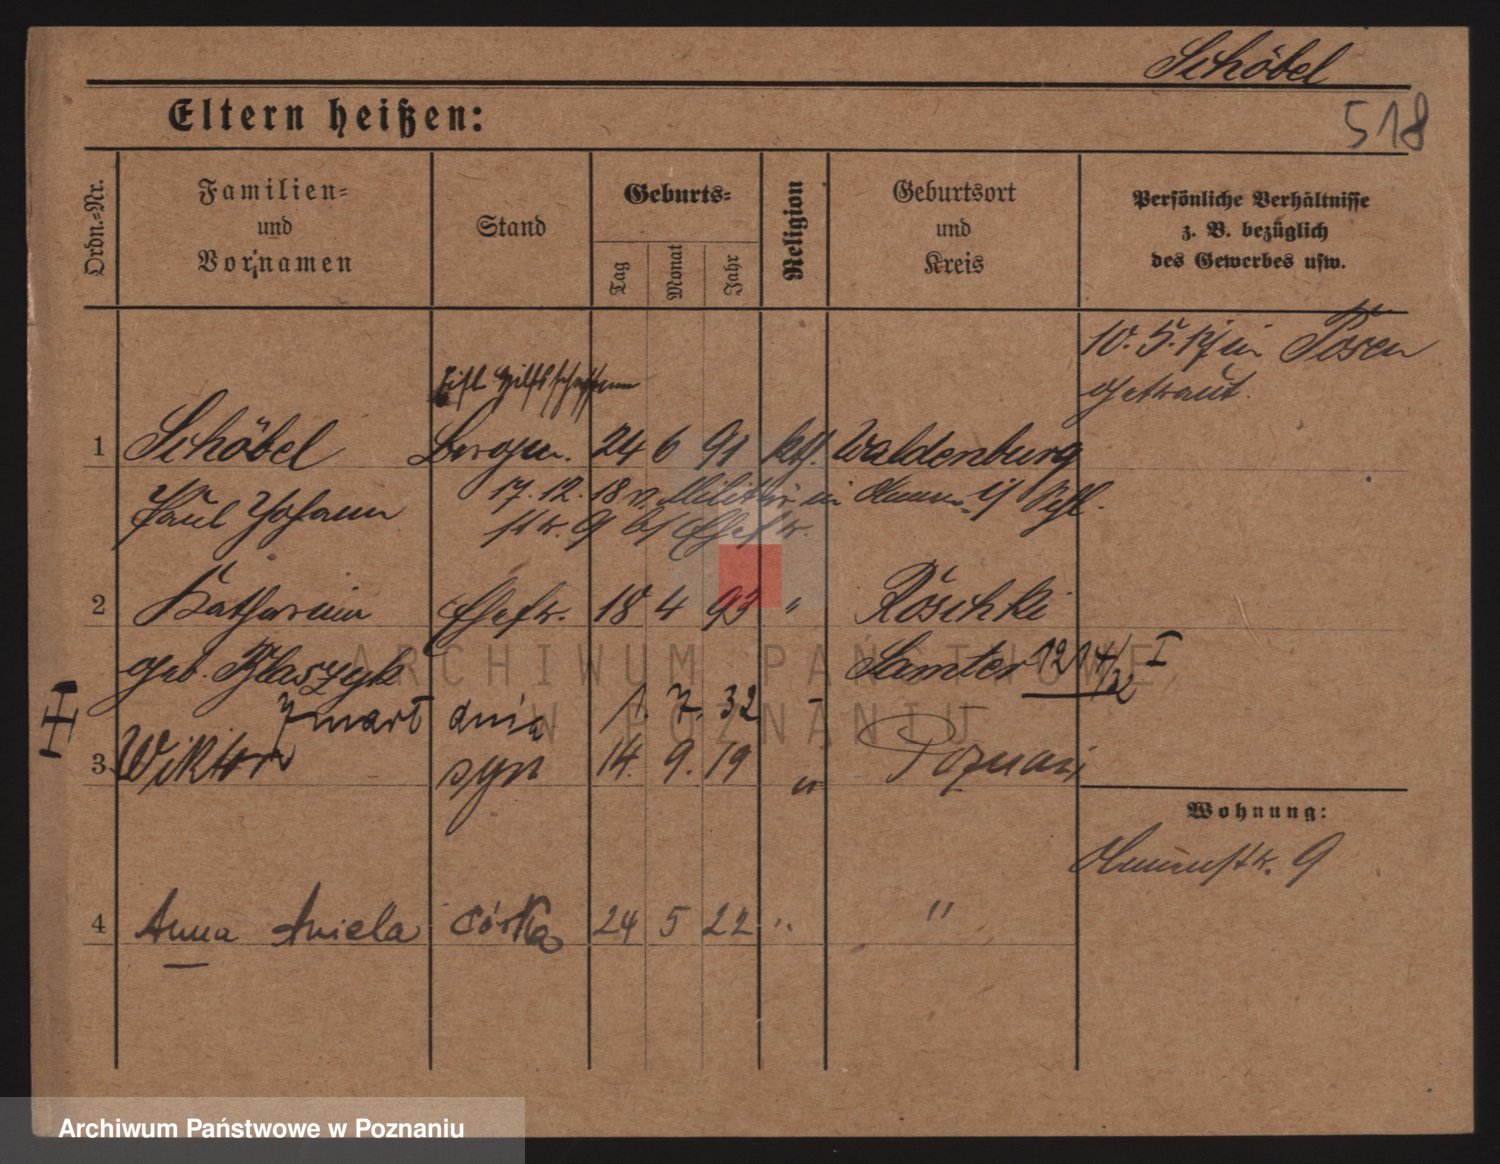 Schöbel
518
Eltern heißen:
Ordn.-Nr.
Familien-
und
Vornamen
Stand
Geburts-
Tag
Monat
Jahr
Religion
Geburtsort
und
Kreis
Persönliche Verhältnisse
z. B. bezüglich
des Gewerbes usw.
10. 5. 17 in Posen
getraut.
1 Schöbel 24 6 91 kth. Waldenburg
Paul Johann
17. 12. 18 v. Militär in
9 bei Ehefr.
2 Katharina Ehefr. 18 4 93 " Röschki
geb. Błaszyk Samter
zmarł dnia 1. 7. 32
3 Wiktor syn 14. 9. 19 " Poznań
Wohnung:
9
4 Anna Aniela córka 24 5 22 " "
ARCHIWUM PAŃSTWOWE
W POZNANIU
Archiwum Państwowe w Poznaniu